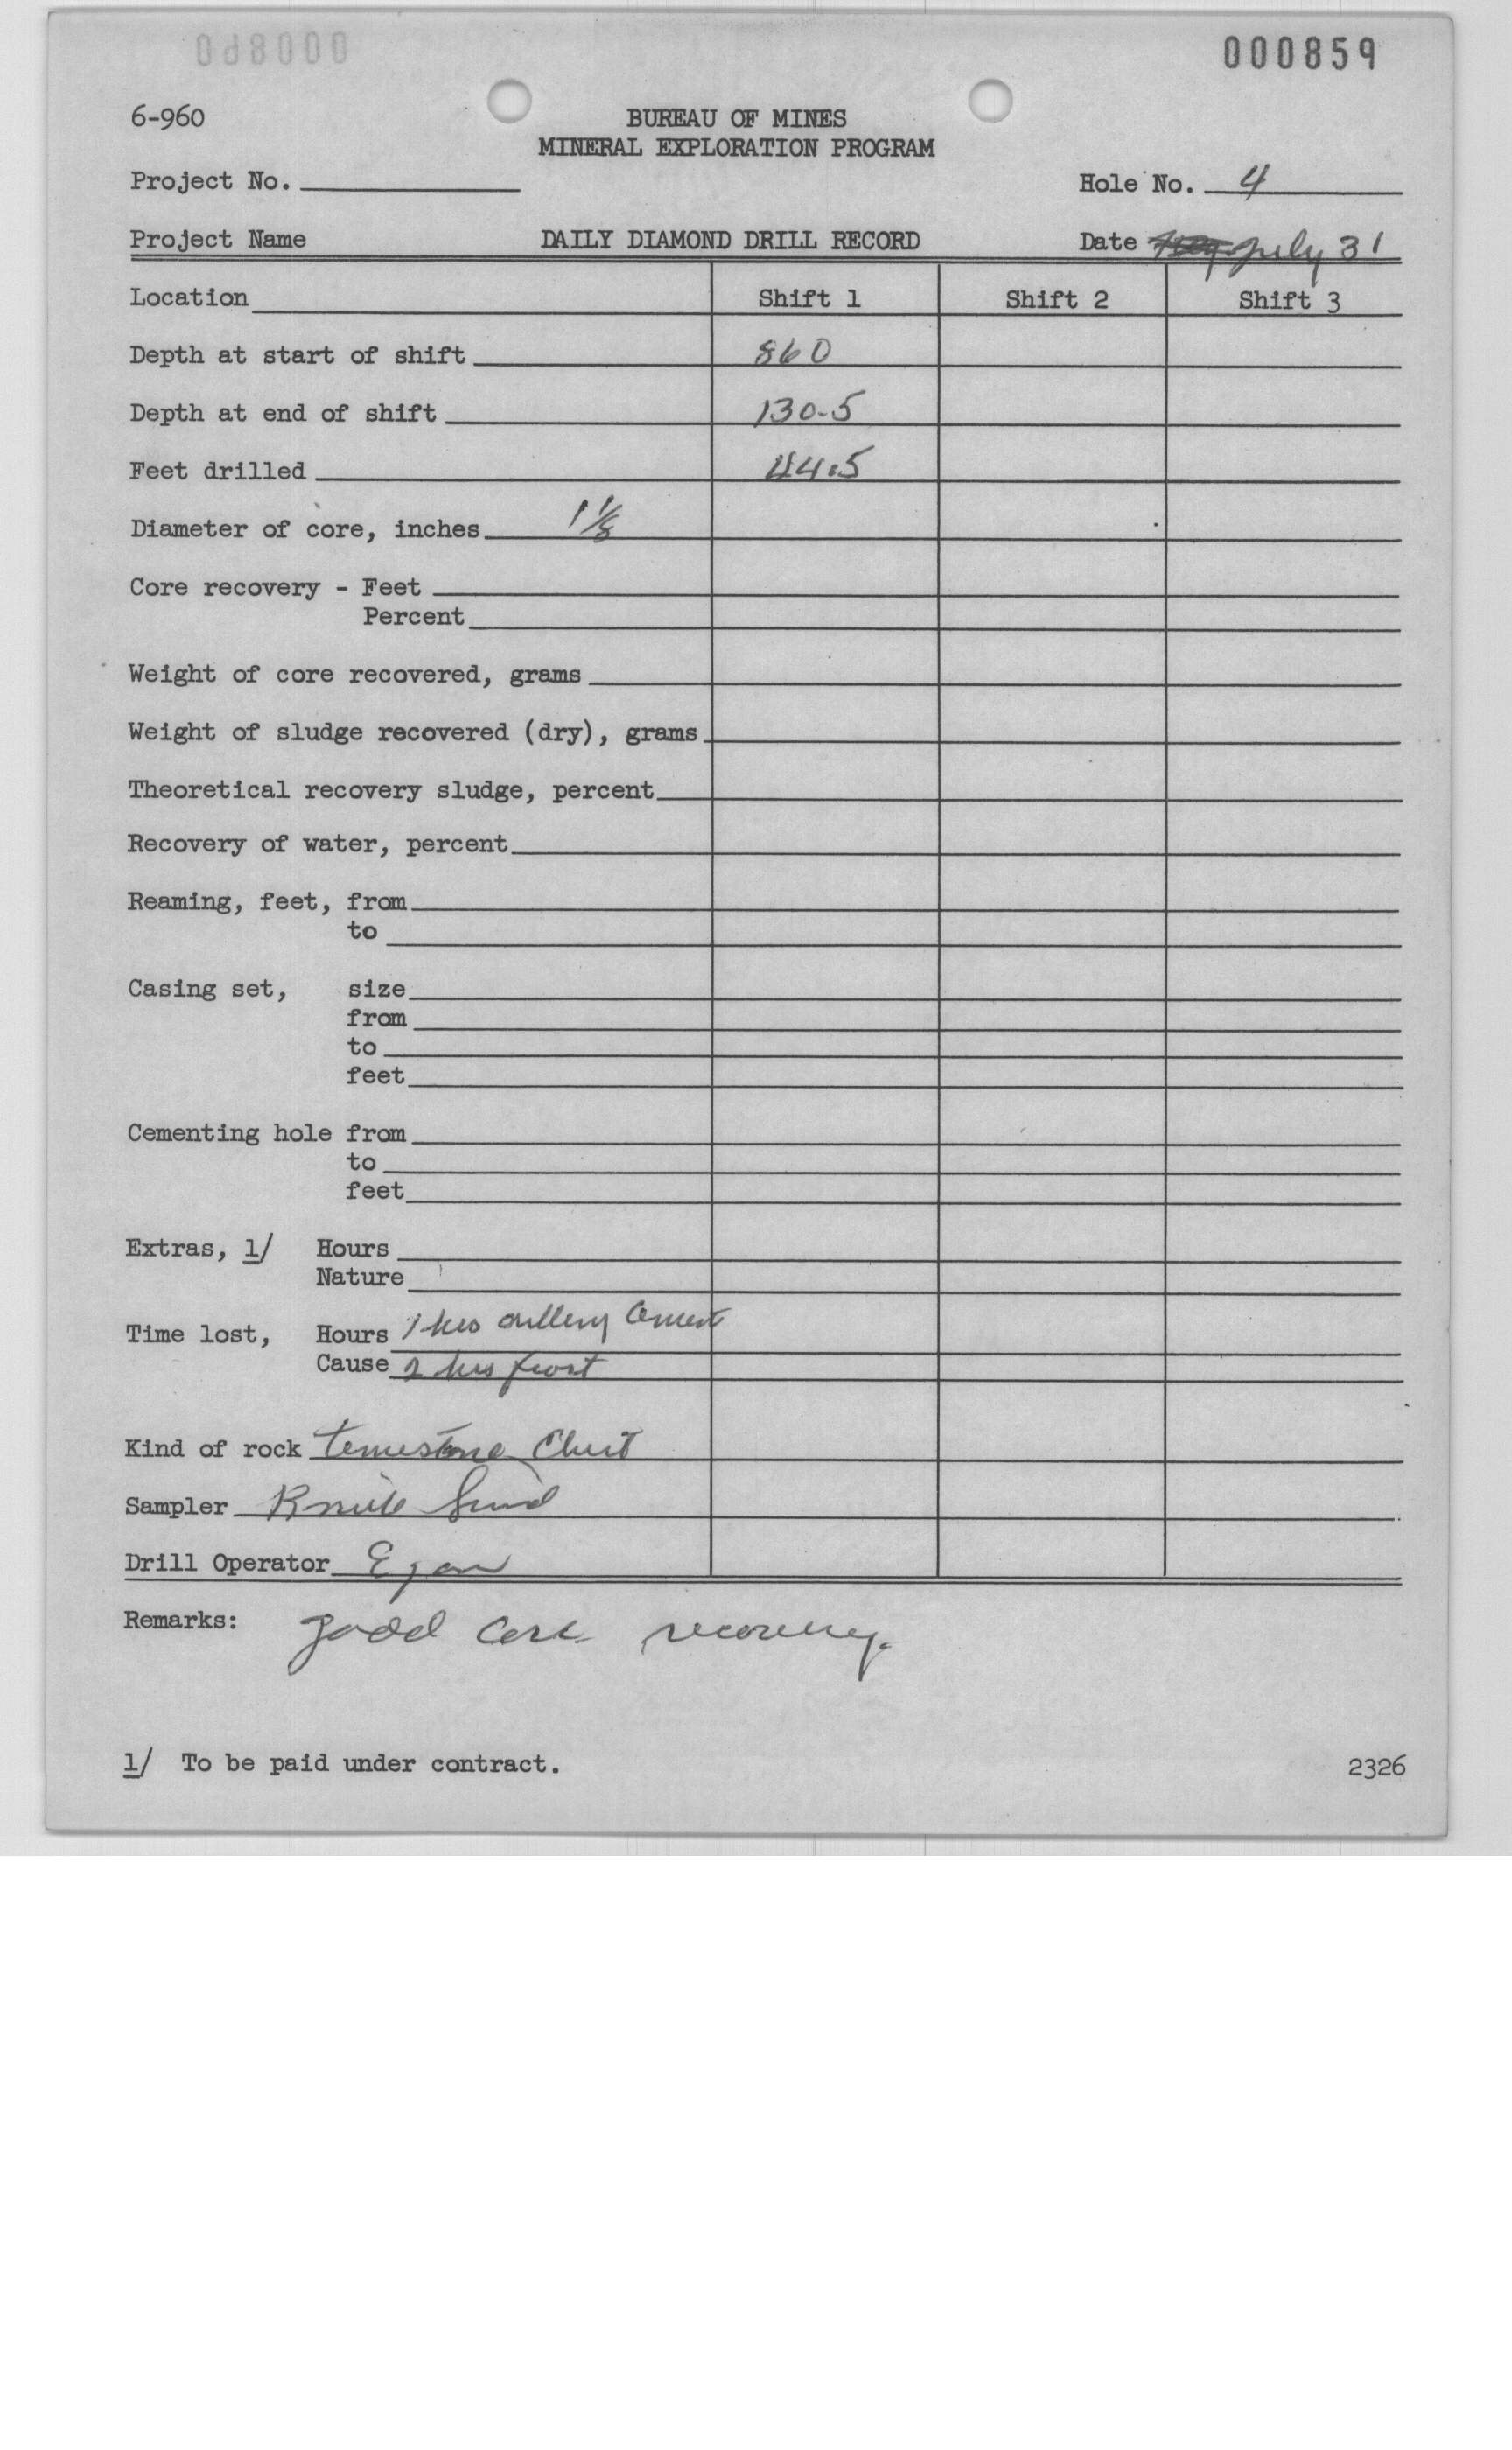 000859
6-960
BUREAU OF MINES
MINERAL EXPLORATION PROGRAM
Project No.
Hole No. 4
Project Name DAILY DIAMOND DRILL RECORD Date July 31
Location Shift 1 Shift 2 Shift 3
Depth at start of shift 860
Depth at end of shift 130.5
Feet drilled 44.5
Diameter of core, inches 1 1/8
Core recovery - Feet
Percent
Weight of core recovered, grams
Weight of sludge recovered (dry), grams
Theoretical recovery sludge, percent
Recovery of water, percent
Reaming, feet, from
to
Casing set, size
from
to
feet
Cementing hole from
to
feet
Extras, 1/ Hours
Nature
Time lost, Hours 1 hrs drilling Cement
Cause 2 hrs
Kind of rock Chert
Sampler
Drill Operator Egan
Remarks: good core recovery.
1/ To be paid under contract.
2326